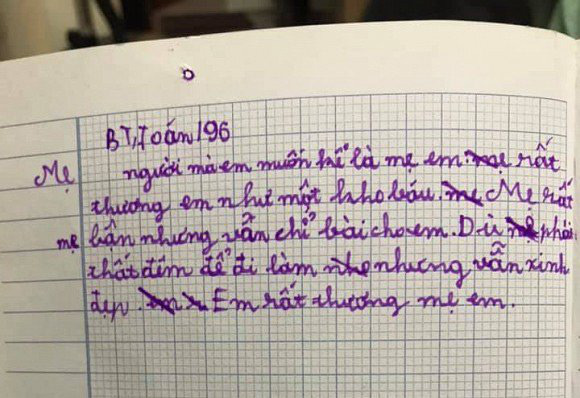 BT, Toán 196
Mẹ người mà em muốn kể là mẹ em. rất
thương em như một kho báu. Mẹ rất
mẹ bận nhưng vẫn chỉ bài cho em. Dù phải
thất đêm để đi làm nhưng vẫn xinh
đẹp. Em rất thương mẹ em.